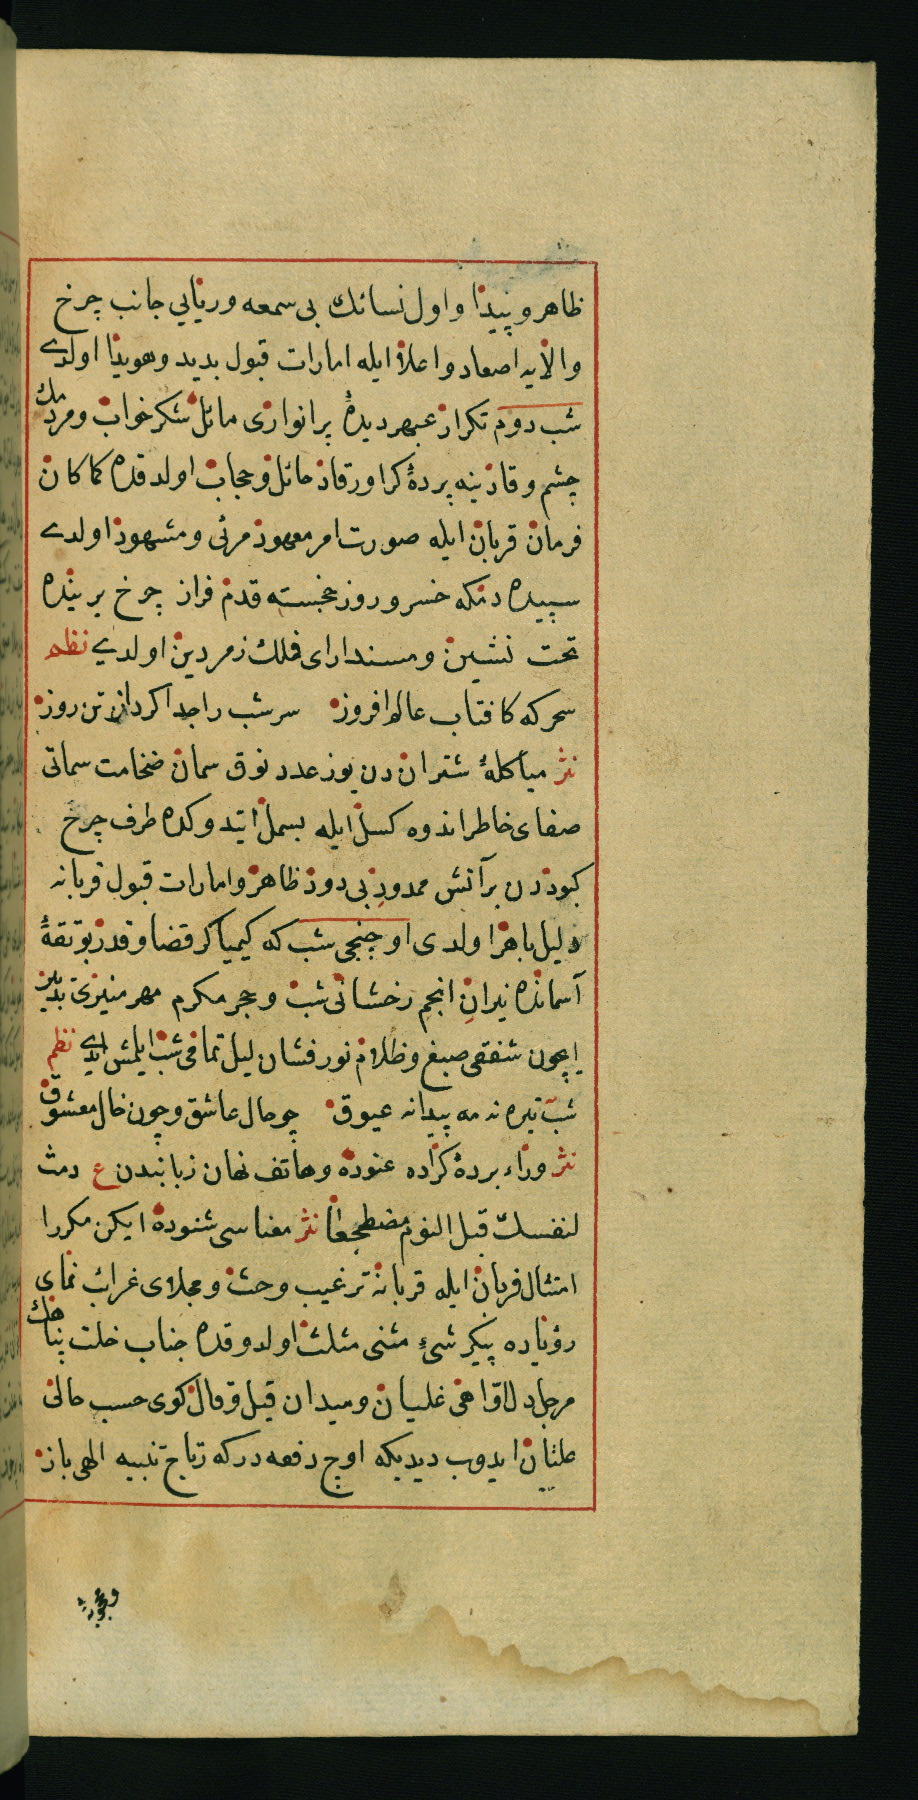 ظاهر و پیدا و اول نسائك بی سمعه و ریایی جانب چرخ
والایه اصعاد و اعلاۀ ایله امارات قبول بدید و هویدا اولدی
شب دوم تکرار عبهر دیدۀ پر انواری مائل شکر خواب و مردمك
چشم و قادینه پردۀ کرا و رقاد حائل و حجاب اولدقده کما کان
فرمان قربان ایله صورت امر معهود مرئی و مشهود اولدی
سپیده دمکه خسرو روز خجسته قدم فراز چرخ برینده
تخت نشین و مسند ارای فلك زمردین اولدی نظم
سحرکه کافتاب عالم افروز سر شب را جدا کرد از تن روز
نثر میا کلۀ شتران دن یوز عدد نوق سمان ضخامت سماتی
صفای خاطر اندوه کسل ایله بسمل ایتدوکده طرف چرخ
کبوددن بر آتش ممدود بی دود ظاهر و امارات قبول قربانه
دلیل باهر اولدی اوچنجی شب که کیمیاکر قضا و قدر بوتقۀ
آسمانده نیران انجم رخشانی شب و حجر مکرم مهر منیری تدبیر
ایچون شفقی صبغ و ظلام نور فشان لیل تمافی شب ایلمش ایدی نظم
شب تیره نه مه پیدا نه عیوق چو حال عاشق و چون خال معشوق
نثر وراء پردۀ کراده عنوده و هاتف نهان زبانیدن ع دمث
لنفسك قبل النوم مضطجعا نثر معناسی شنوده ایکن مکررا
امتثال فرمان ایله قربانه ترغیب و حث و مجلای غرائب نمای
رؤیاده پیکر شیء مثنی مثلث اولدوقده جناب خلت پناهك
مرجل دل اواهی غلیان و میدان قیل و قال کوی حسب حالی
غلتان ایدوب دیدیکه اوچ دفعه در که رتاج تنبیه الهی باز